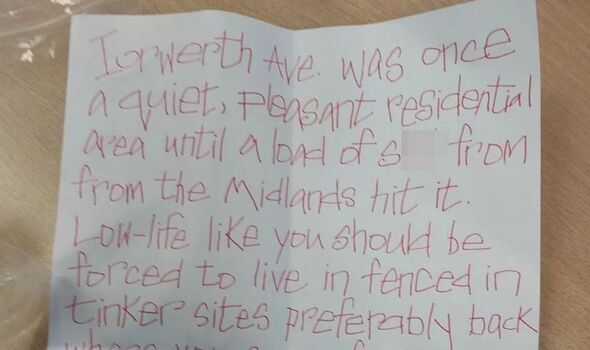 Iorwerth Ave. was once
a quiet, pleasant residential
area until a load of s from
from the Midlands hit it.
Low-life like you should be
forced to live in fenced in
tinker sites preferably back